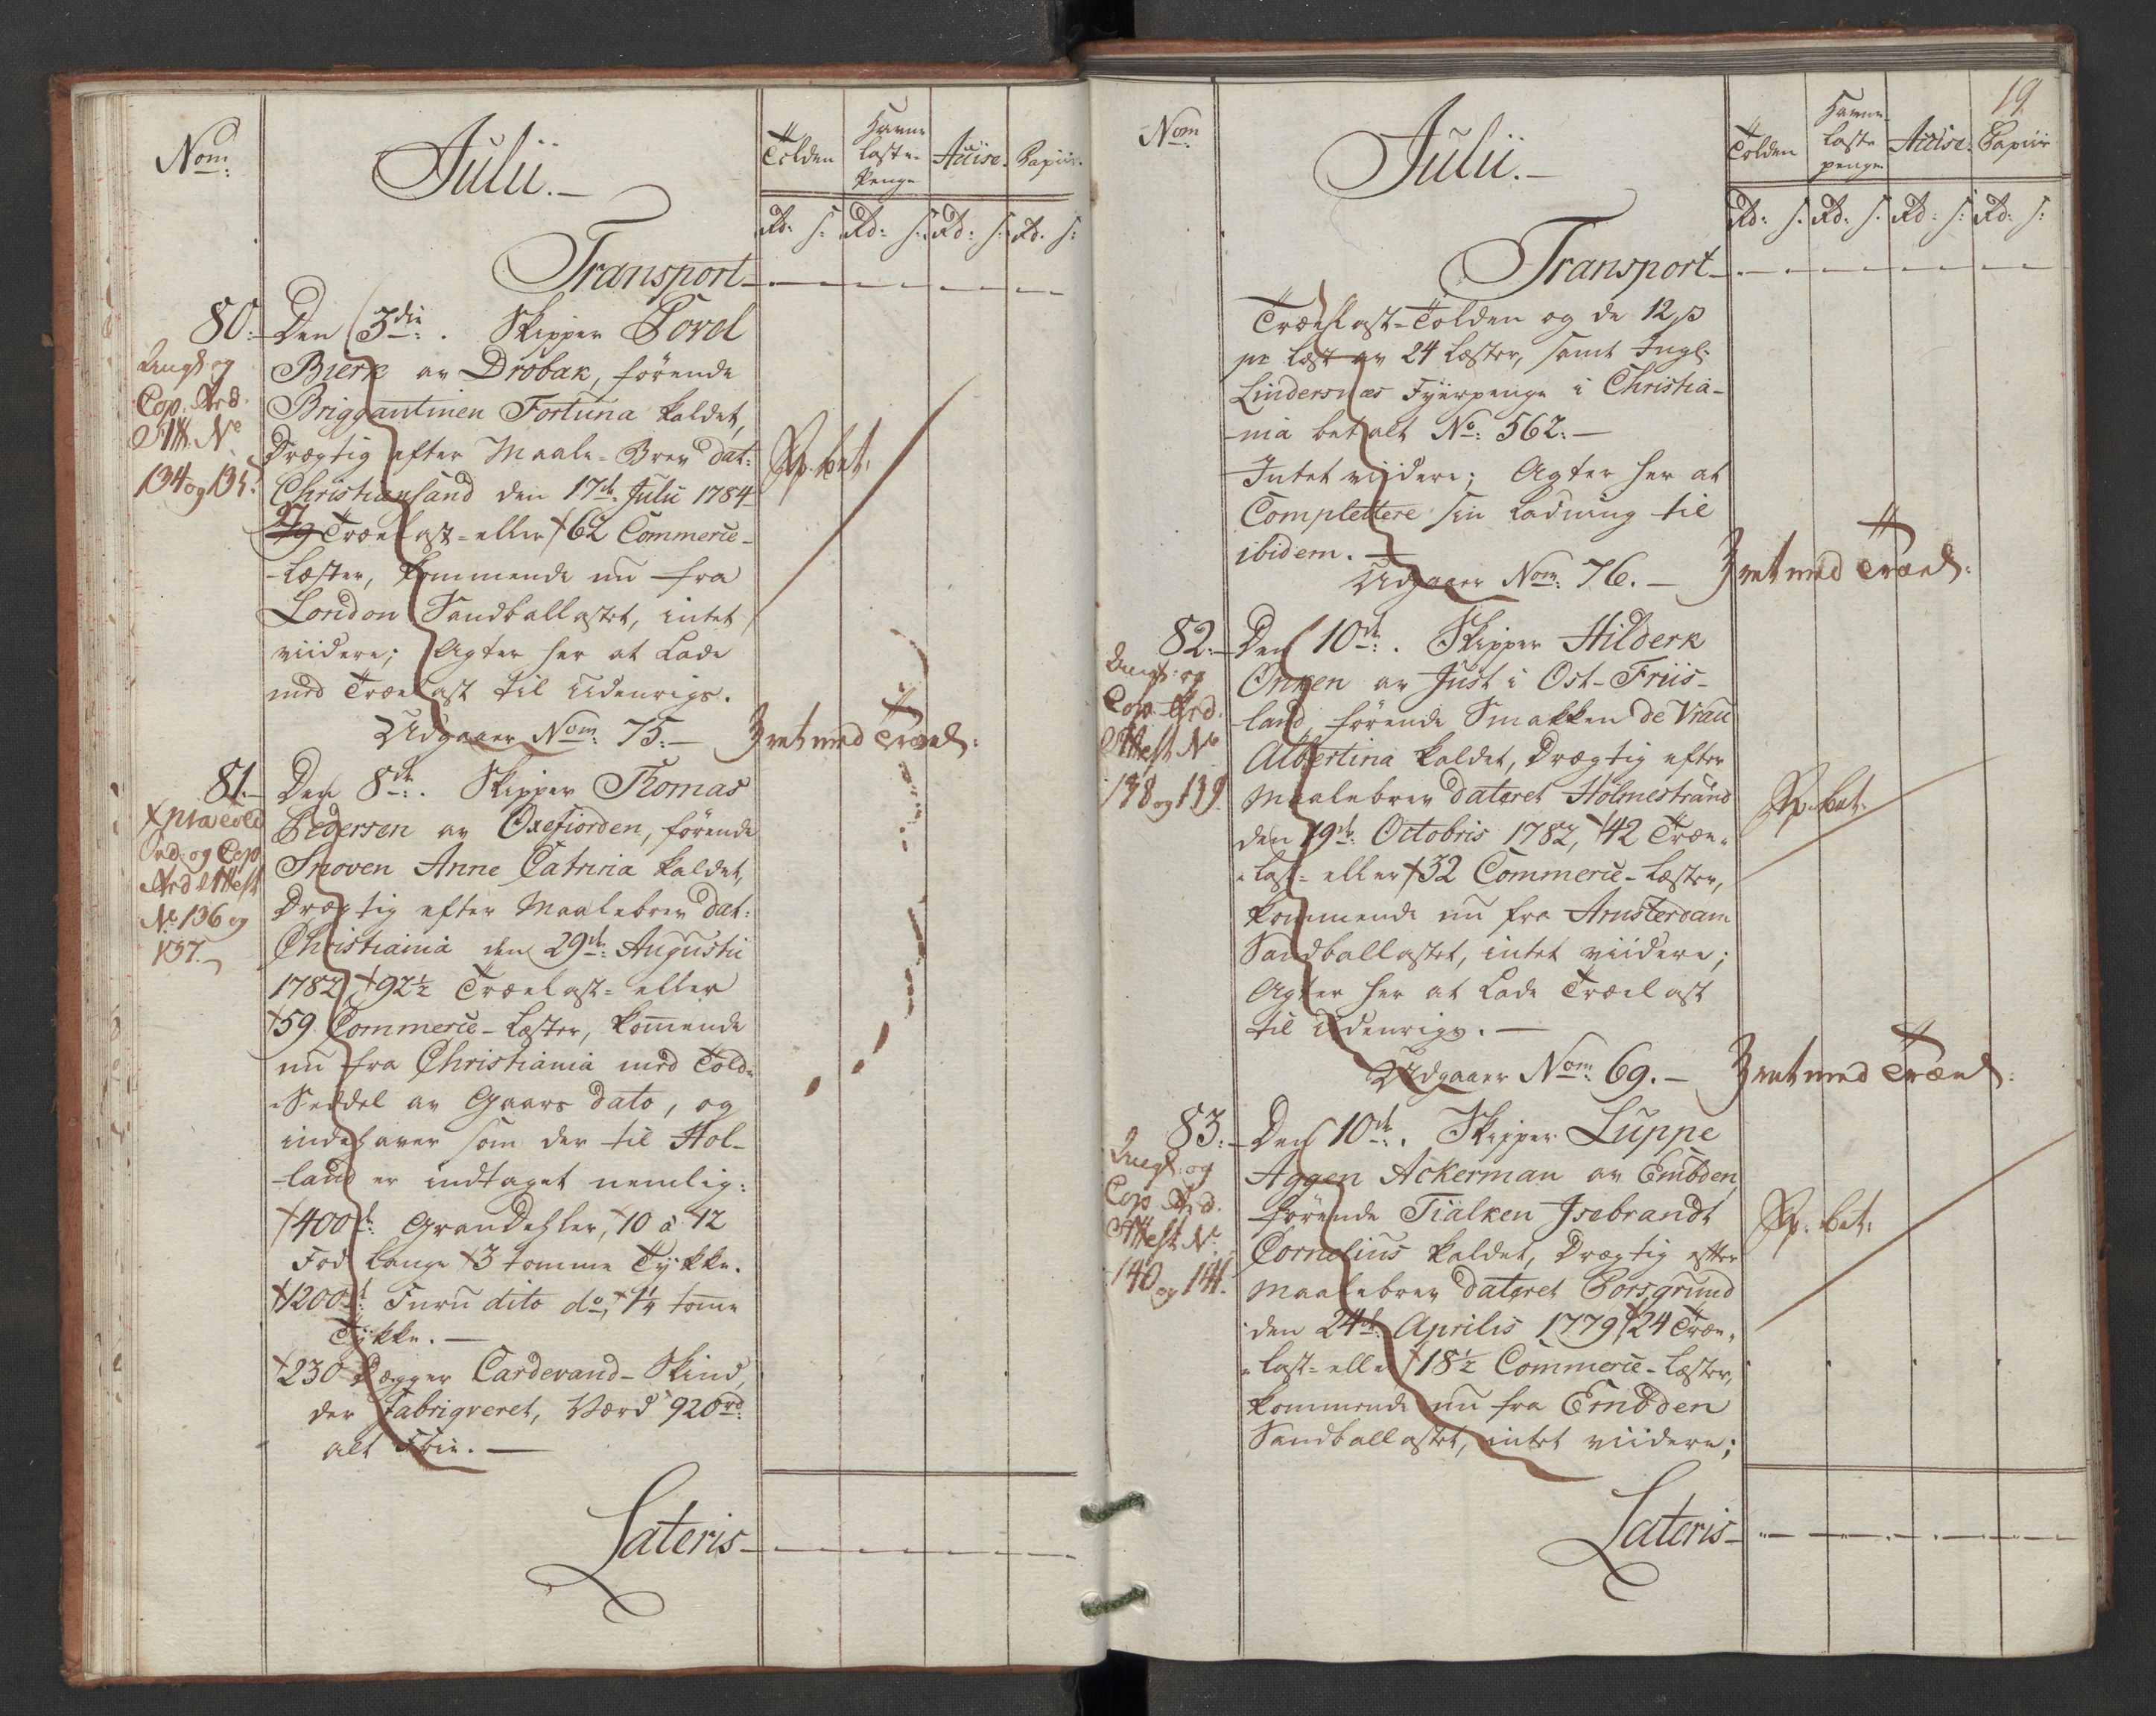 Nom:
Julii.-
Tolden
Havne
Laste-
Penge
Accise.
Papiir.
Rd: s: Rd: s: Rd: s: Rd: s:
Transport-
80:- Den 3die. Skipper Povel
Bierk av Drøbak, førende
Briggantinen Fortuna kaldet,
Drægtig efter Maale-Brev dat:
Christiansand den 17de Julii 1784
Trælast- eller 62 Commerce-
-Læster, kommende nu fra
London Sandballastet, intet
viidere; Agter her at Lade
med Trælast til Udenrigs.
Udgaaer Nom: 75.-
og
Cop. Ard.
Att. No
134 og 135.
81.- Den 8de. Skipper Thomas
Pedersen av Oxefiorden, førende
Snoven Anne Catrina kaldet,
Drægtig efter Maalebrev dat:
Christiania den 29de Augustii
1782, 92½ Trælast- eller
59 Commerce-Læster, kommende
nu fra Christiania med Told-
-Seddel av Gaars dato, og
indehaver som der til Hol-
-land er indtaget nemlig:
400 st: Grandehler, 10 a 12
Fod Lange 3 tomme Tykke.
1200 st: Furu dito do, 1¼ tome
Tykke.-
230 Dægger Cardevand-Skind,
der Fabriqveret, Værd 920 rd:
alt Frie.-
Xnia told
Sed: og Cop
Ard Attest
No 136 og
137.
Lateris-
19.
Nom
Julii.-
Tolden
Havne-
Laste
penge
Accise.
Papiir
Rd: s. Rd: s. Rd: s: Rd: s:
Transport-
Trælast-Tolden og de 12 s
pr Læst av 24 Læster, samt Ingl:
Lindersnæs Fyerpenge i Christia-
-nia betalt No: 562.-
Intet viidere; Agter her at
Complettere sin Ladning til
ibidem.-
Udgaaer Nom: 76.-
82:- Den 10de. Skipper Hilderk
Onken av Just i Ost-Friis-
-land, førende Smakken de Vrau
Albertina kaldet, Drægtig efter
Maalebrev dateret Holmestrand
den 19de Octobris 1782, 42 Træ-
-last- eller 32 Commerce-Læster,
kommende nu fra Amsterdam
Sandballastet, intet viidere;
Agter her at Lade Trælast
til Udenrigs.-
Udgaaer Nom: 69.-
og
Cop. Ard.
Attest No
138 og 139
83:- Den 10de. Skipper Luppe
Aggen Ackerman av Embden,
førende Tialken Isebrandt
Cornelius kaldet, Drægtig efter
Maalebrev dateret Porsgrund
den 24de Aprilis 1779, 24 Træ-
-last- eller 18½ Commerce-Læster,
kommende nu fra Embden
Sandballastet, intet viidere;
og
Cop. Ard.
Attest No
140 og 141.
Lateris-